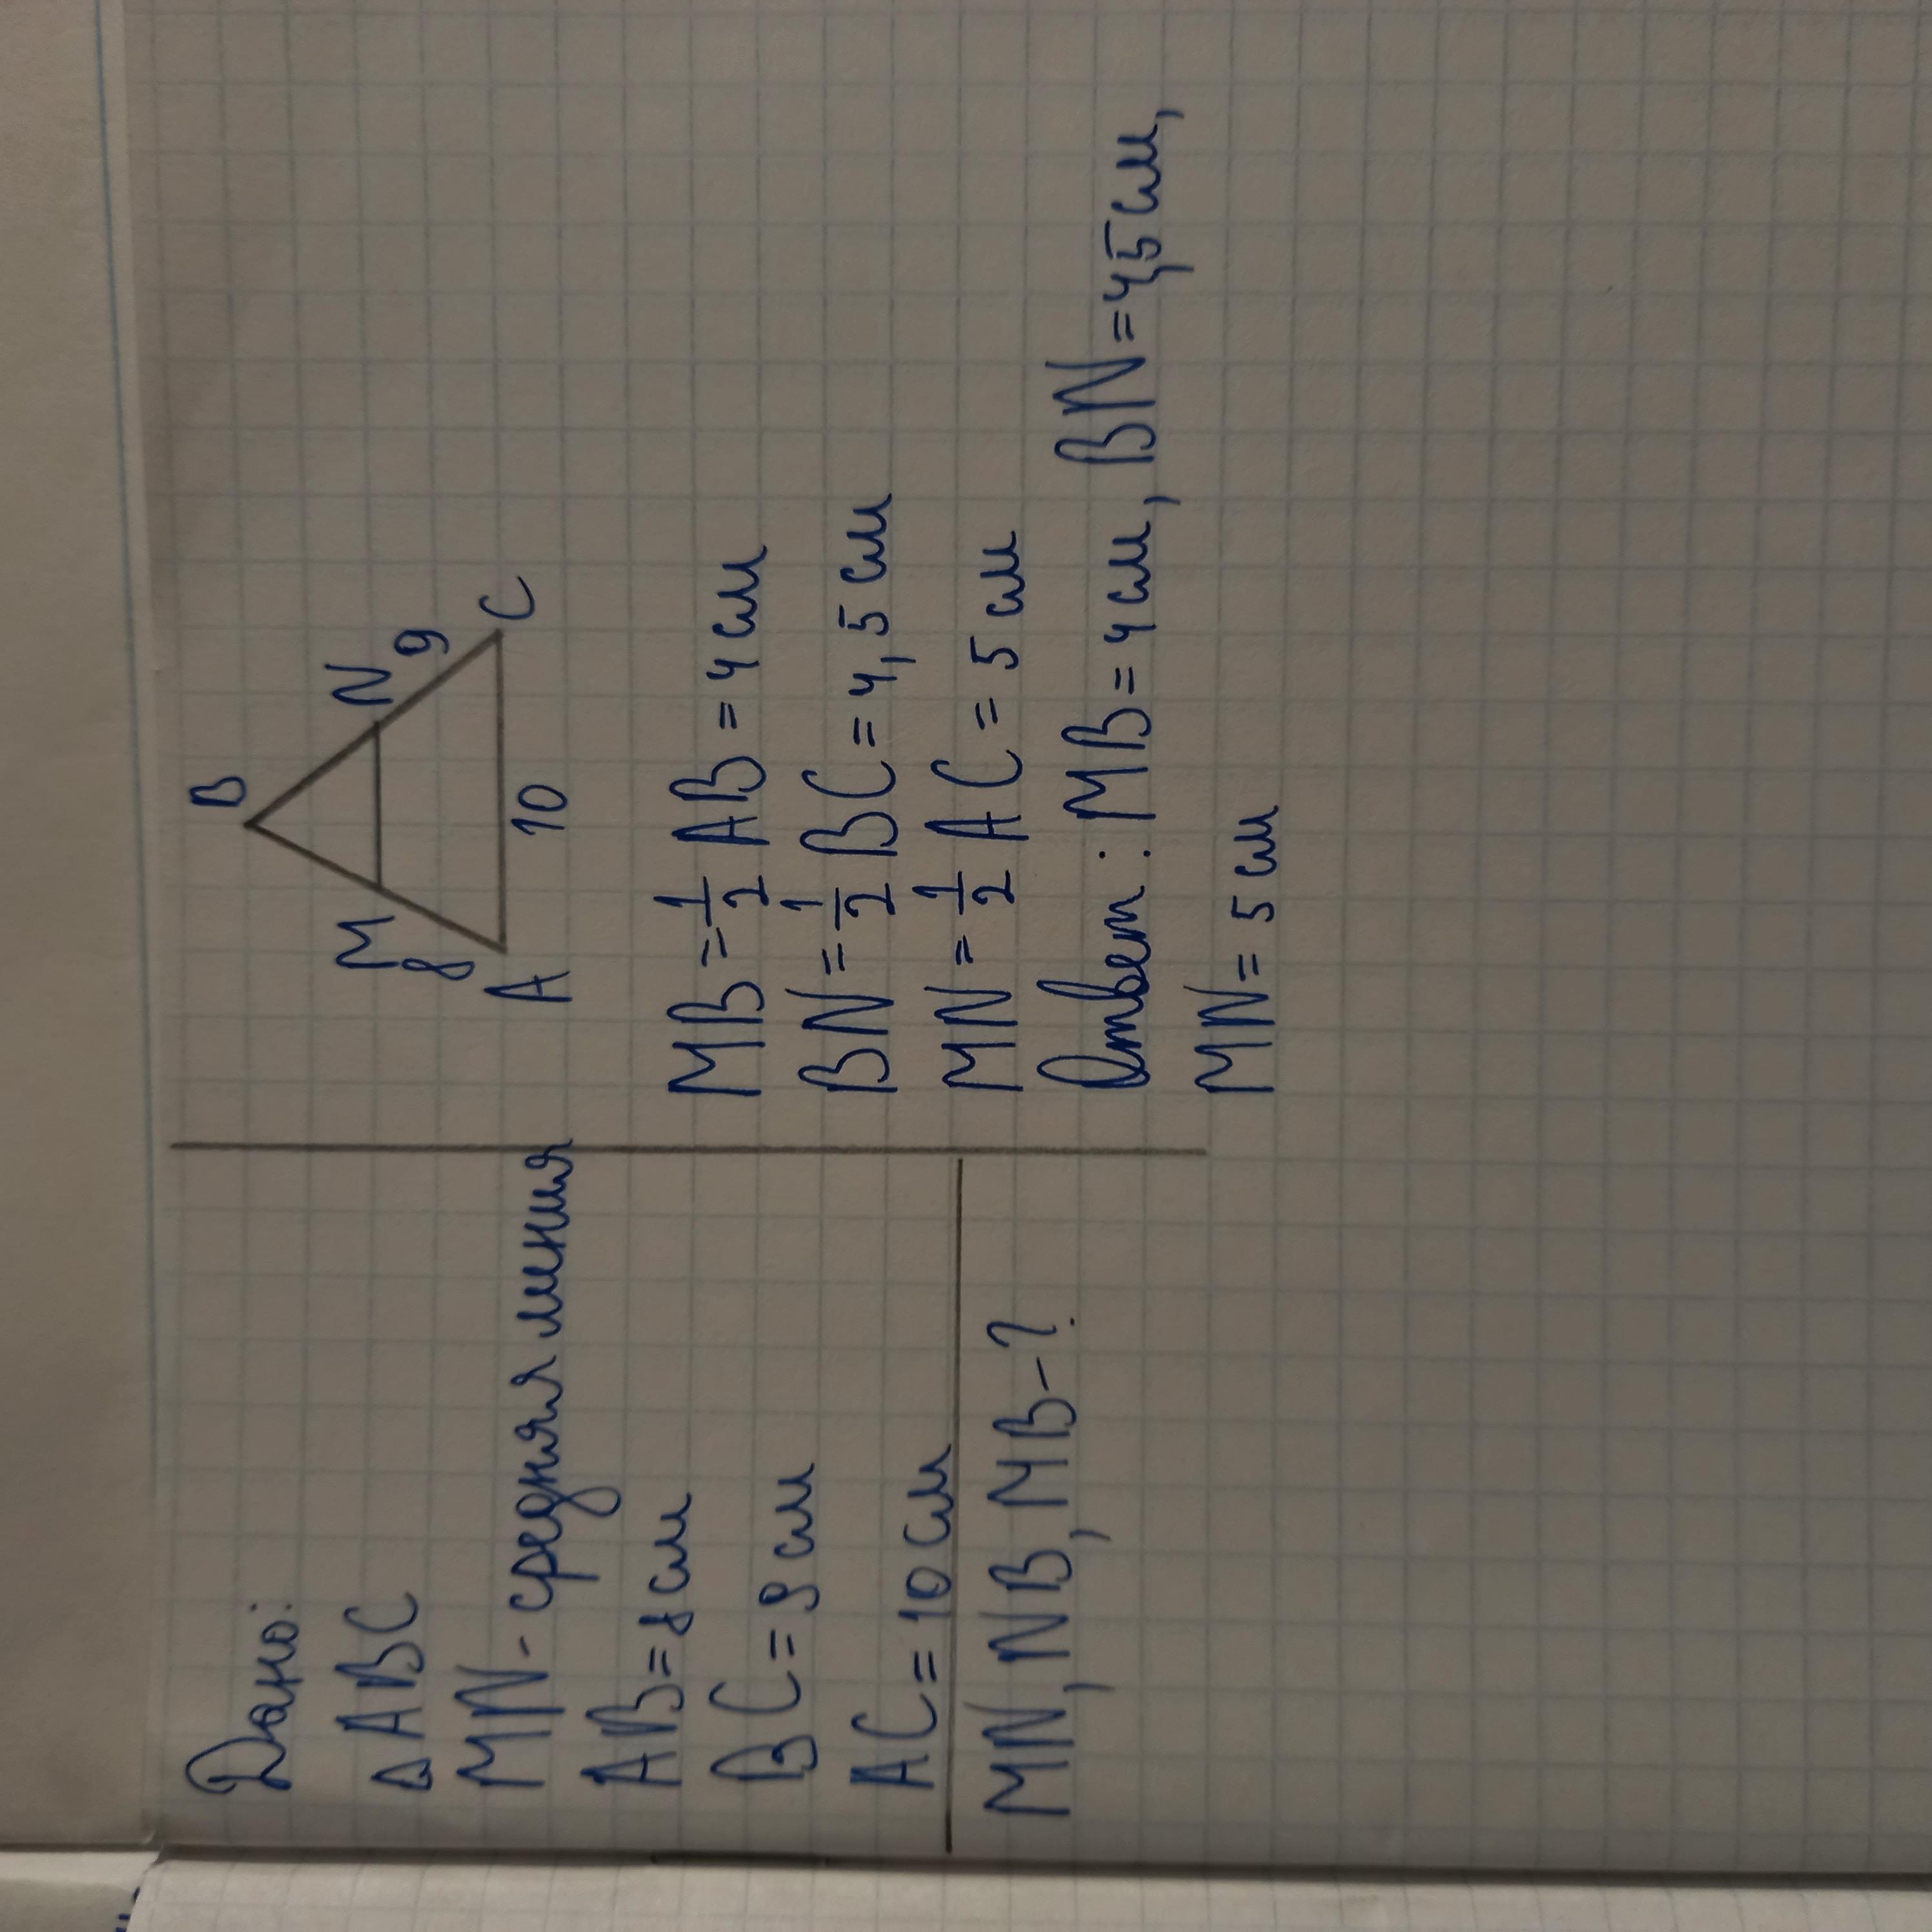 Дано:
△ABC
MN - средняя линия
AB = 8 см
BC = 9 см
AC = 10 см
MN, NB, MB - ?
B
M
N
8
9
A
C
10
MB = 1/2 AB = 4 см
BN = 1/2 BC = 4,5 см
MN = 1/2 AC = 5 см
Ответ: MB = 4 см, BN = 4,5 см,
MN = 5 см